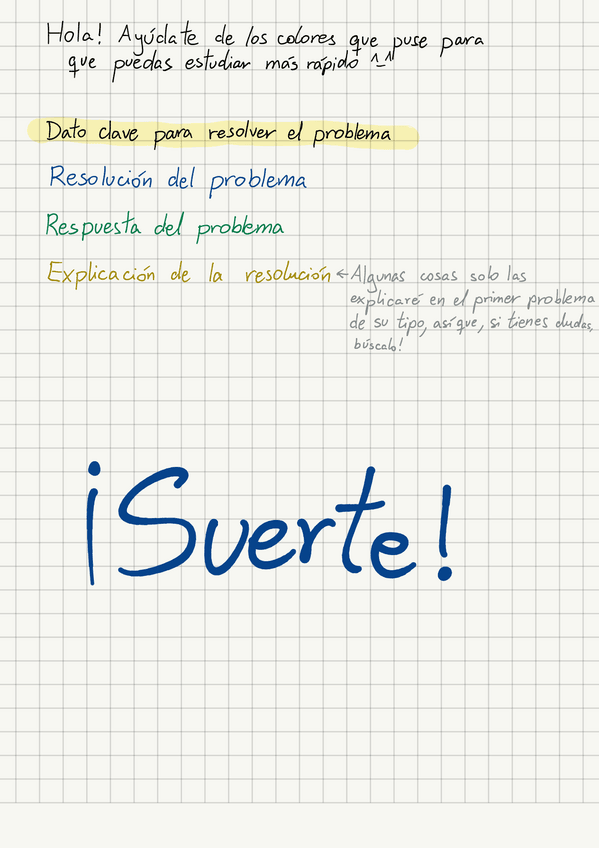 Hola! Ayúdate de los colores que puse para
que puedas estudiar más rápido ^_^
Dato clave para resolver el problema
Resolución del problema
Respuesta del problema
Explicación de la resolución ← Algunas cosas solo las
explicaré en el primer problema
de su tipo, así que, si tienes dudas,
búscalo!
¡Suerte!